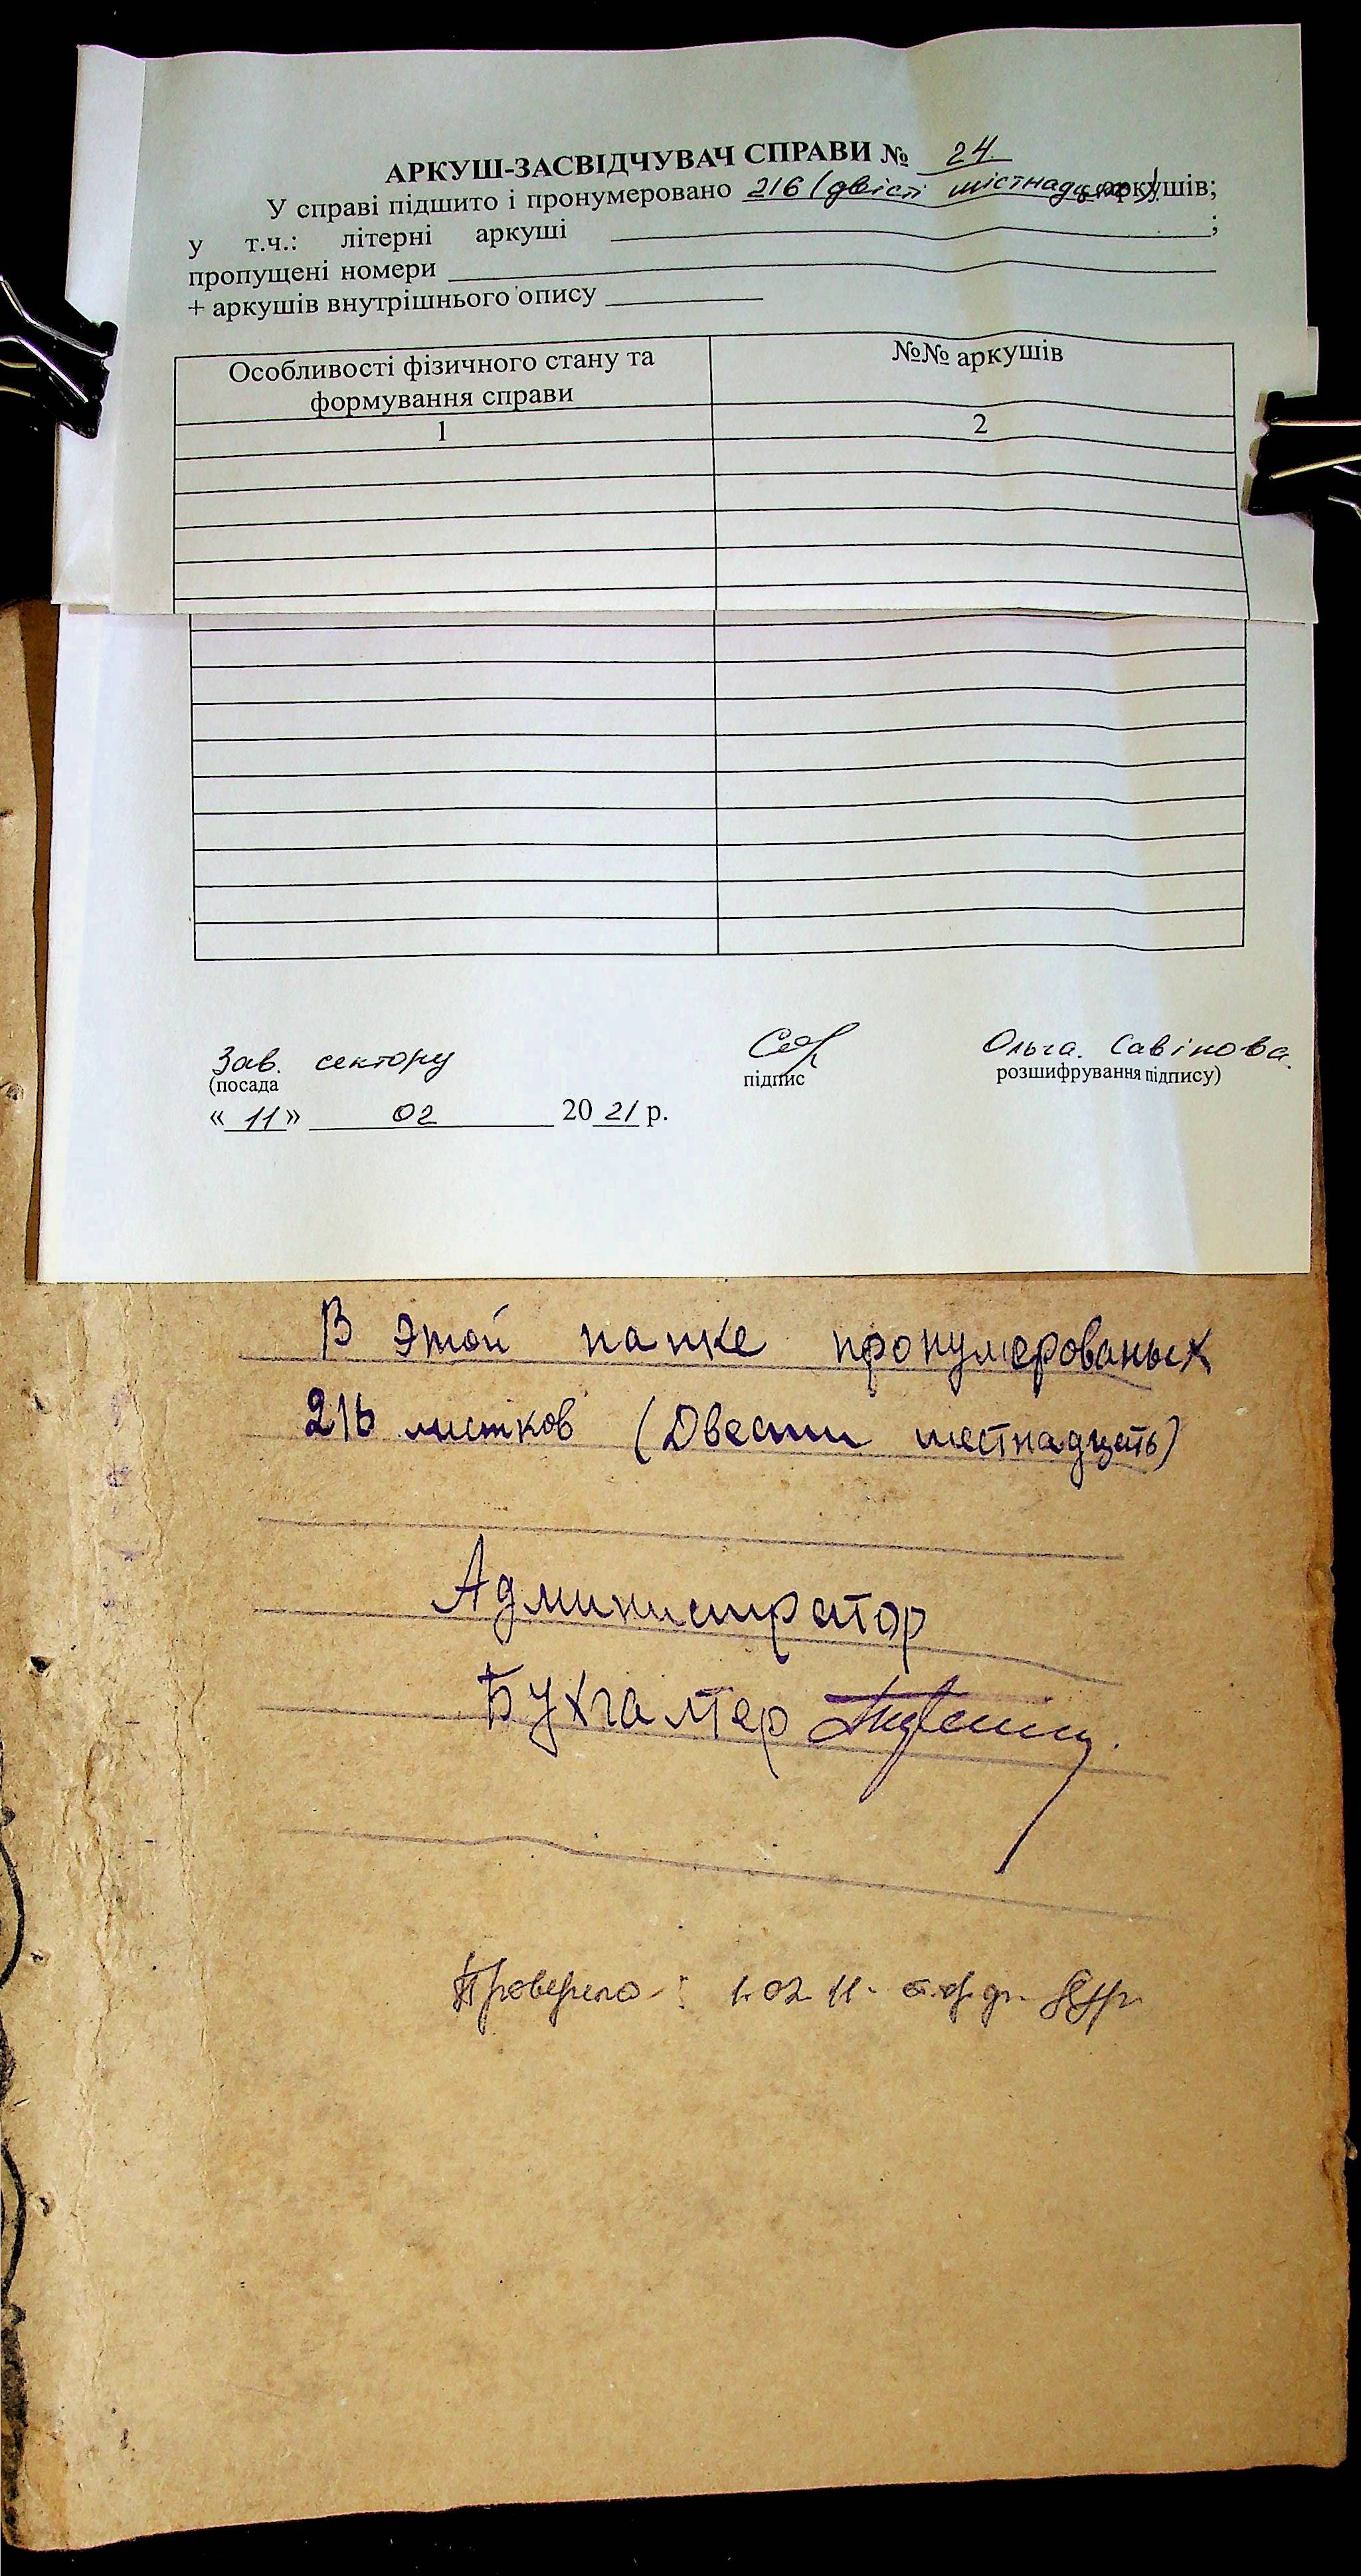 АРКУШ-ЗАСВІДЧУВАЧ СПРАВИ № 24
У справі підшито і пронумеровано 216 (двісті шістнадцять) аркушів;
у т.ч.: літерні аркуші ;
пропущені номери
+ аркушів внутрішнього опису
Особливості фізичного стану та формування справи №№ аркушів
1 2
Зав. сектору Ольга Савінова
(посада підпис розшифрування підпису)
« 11 » 02 20 21 р.
В этой папке пронумерованых
216 листков (Двести шестнадцать)
Администратор
Бухгалтер
Проверено: 1.02.11.